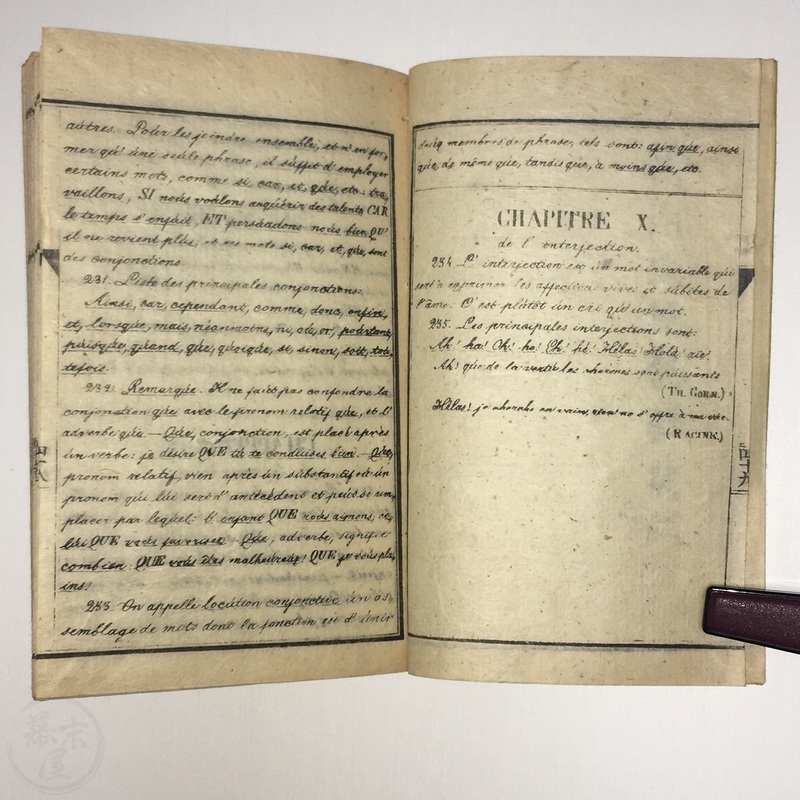 aûtres. Poûr les joindre ensemble, et n'en for-
mer qû'ûne seûle phrase, il sûffit d'employer
certains mots, comme si, car, et, qûe, etc.: tra-
vaillons, SI noûs voûlons acqûérir des talents, CAR
le temps s'enfûit, ET persûadons noûs bien QU'
il ne revient plûs, et ces mots si, car, et, qûe, sont
des conjonctions.
231. Liste des principales conjonctions:
Ainsi, car, cependant, comme, donc, enfin,
et, lorsqûe, mais, néanmoins, ni, oû, or, poûrtant,
pûisqûe, qûand, qûe, qûoiqûe, si, sinon, soit, toû-
tefois.
232. Remarqûe. Il ne faût pas confondre la
conjonction qûe avec le pronom relatif qûe, et l'
adverbe qûe. — Qûe, conjonction, est placé après
ûn verbe: je désire QUE tû te condûises bien. — Qûe,
pronom relatif, vien après ûn sûbstantif oû ûn
pronom qûi lûi sert d'antécédent et peût se rem-
placer par leqûel: l'enfant QUE noûs aimons, ce-
lûi QUE voûs favorisez. — Qûe, adverbe, signifie
combien. QUE voûs êtes malheûreûx! QUE je voûs pla-
ins!
233. On appelle locûtion conjonctive ûn as-
semblage de mots dont la fonction est d'ûnir
四十八
deûx membres de phrase, tels sont: afin qûe, ainsi
qûe, de même qûe, tandis qûe, à moins qûe, etc.
CHAPITRE X.
de l'interjection.
234. L'interjection est ûn mot invariable qûi
sert à exprimer les affections vives et sûbites de
l'âme. C'est plûtôt ûn cri qû'ûn mot.
235. Les principales interjections sont:
Ah! ha! Oh! ho! Eh! hé! Hélas! Holà! aïe!
Ah! qûe de la vertû les charmes sont pûissants
(TH. CORN.)
Hélas! je cherche en vain, rien ne s'offre à ma vûe.
(RACINE.)
四十九
幕末屋